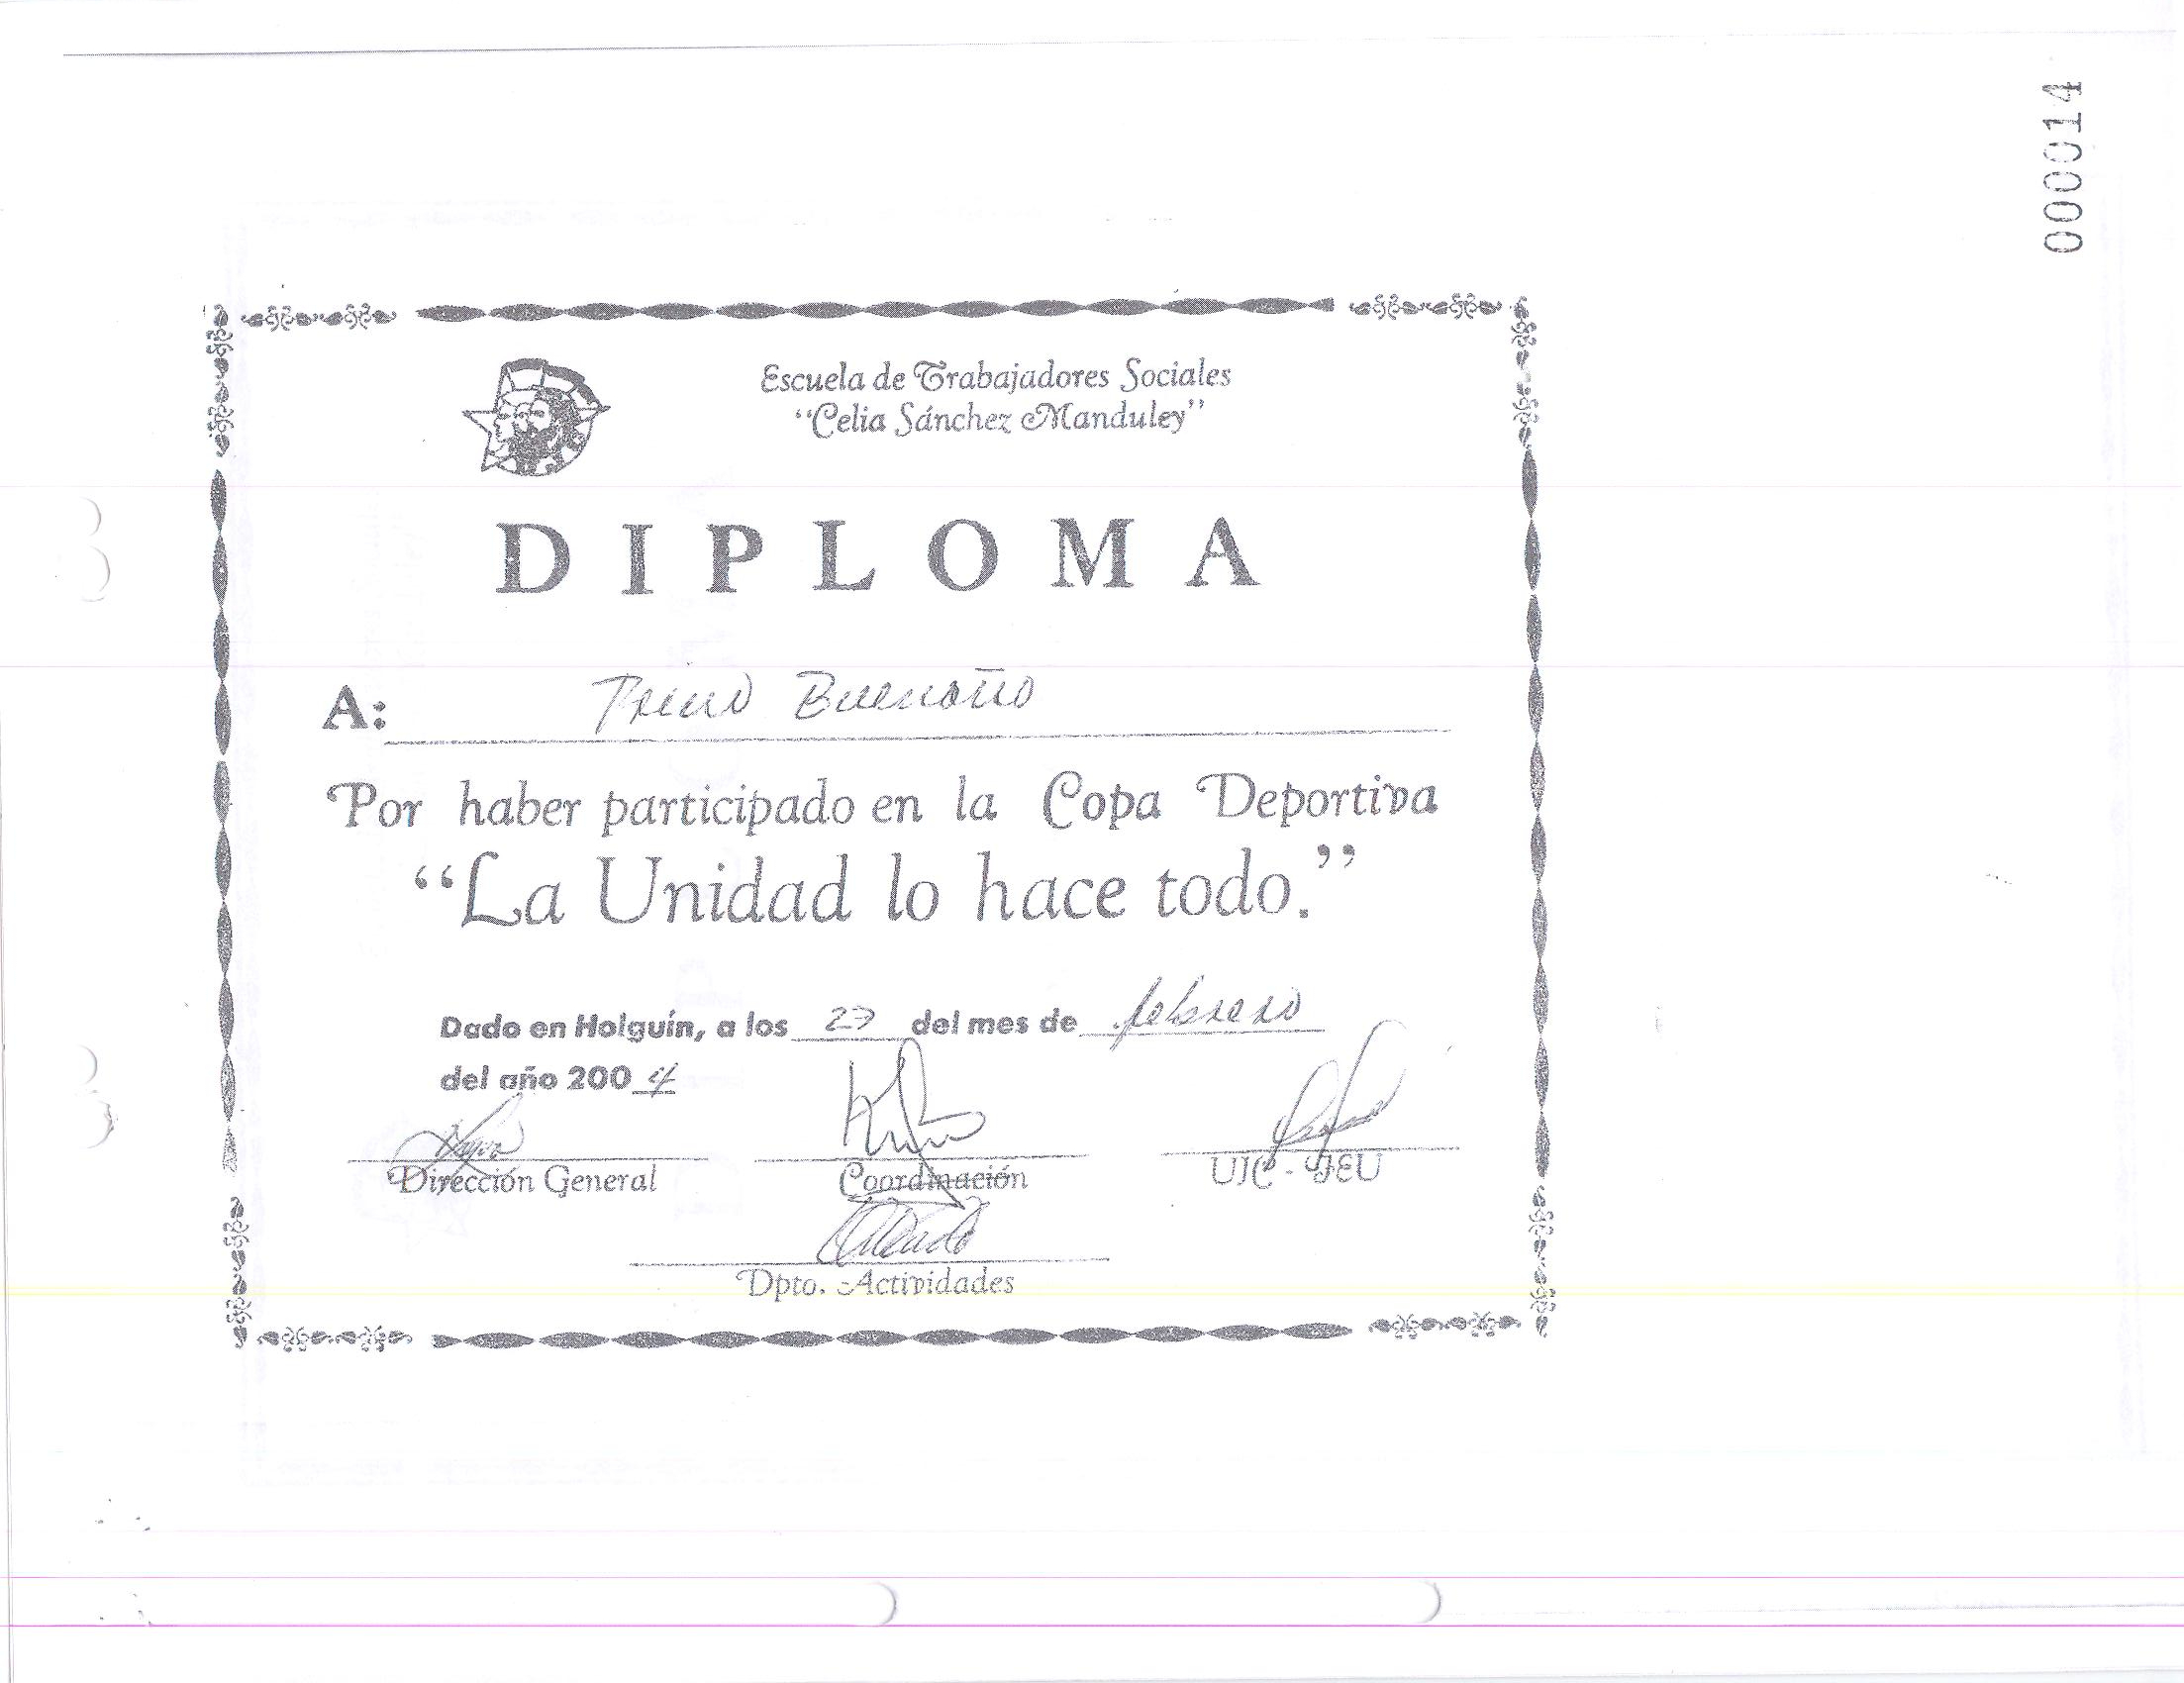 000014
Escuela de Trabajadores Sociales
“Celia Sánchez Manduley”
DIPLOMA
A: Buenaño
Por haber participado en la Copa Deportiva
“La Unidad lo hace todo.”
Dado en Holguín, a los 27 del mes de febrero
del año 2004
Dirección General
Coordinación
UJC - FEU
Dpto. Actividades